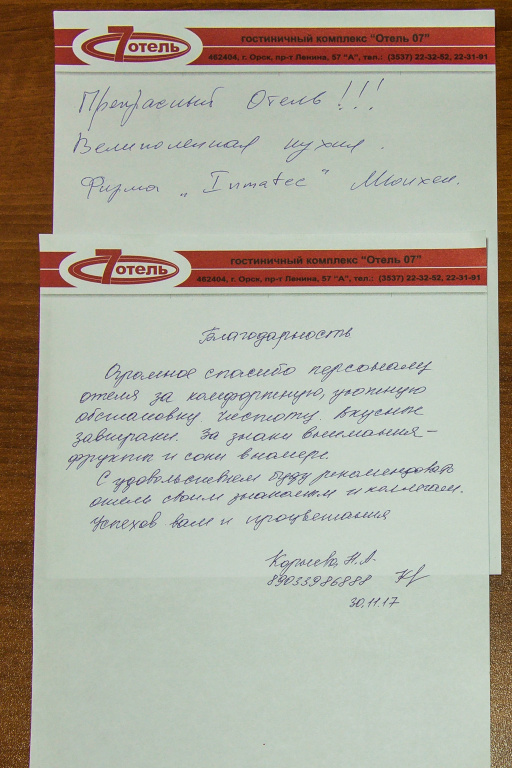 7 отель
гостиничный комплекс "Отель 07"
462404, г. Орск, пр-т Ленина, 57 "А", тел.: (3537) 22-32-52, 22-31-91
Прекрасный Отель!!!
Великолепная кухня.
Фирма „Inmatec" Мюнхен.
7 отель
гостиничный комплекс "Отель 07"
462404, г. Орск, пр-т Ленина, 57 "А", тел.: (3537) 22-32-52, 22-31-91
Благодарность
Огромное спасибо персоналу
отеля за комфортную, уютную
обстановку, чистоту. Вкусные
завтраки. За знаки внимания –
фрукты и соки в номере.
С удовольствием буду рекомендовать
отель своим знакомым и коллегам.
Успехов вам и процветания
Н.А.
89033986888
30.11.17